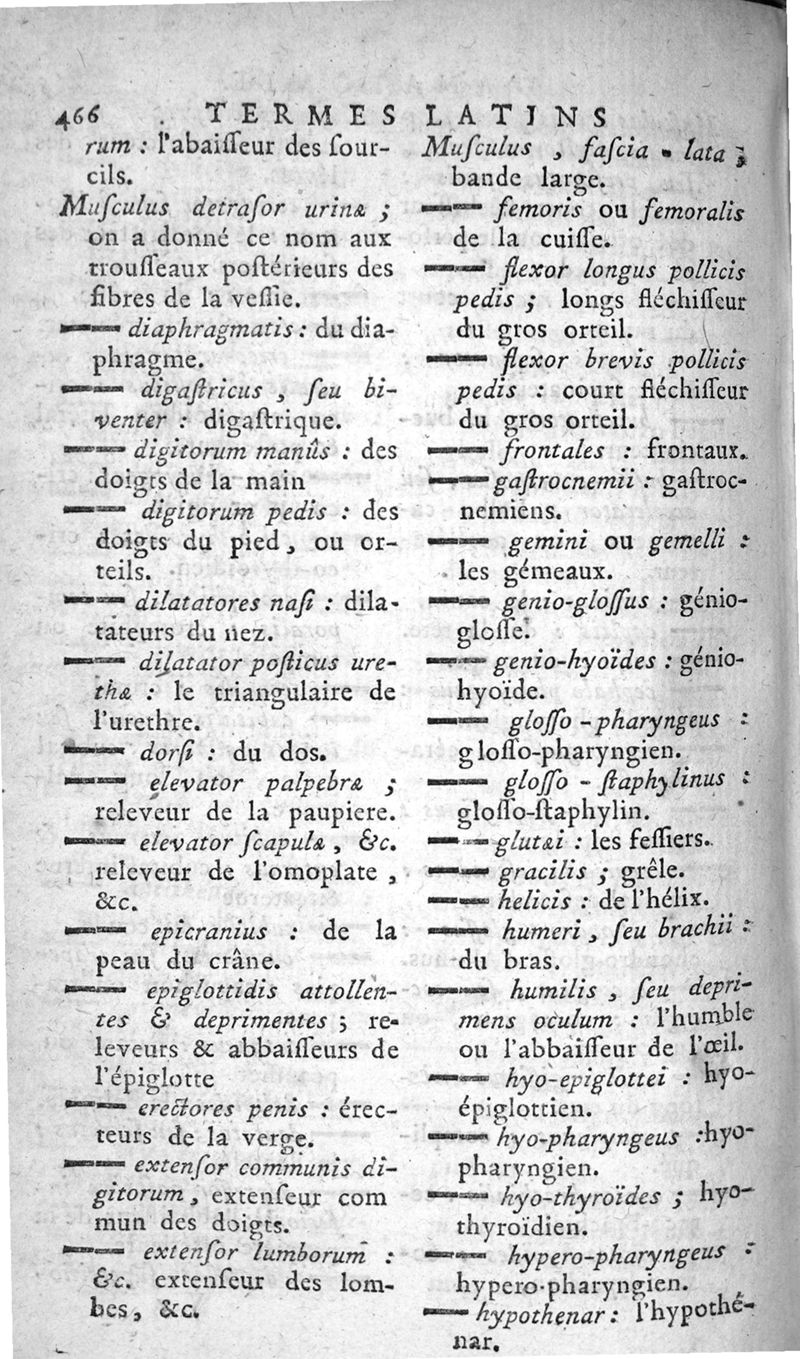 466 TERMES LATINS
rum : l'abaiſſeur des ſour-
cils.
Muſculus detraſor urinæ ;
on a donné ce nom aux
trouſſeaux poſtérieurs des
fibres de la veſſie.
—— diaphragmatis : du dia-
phragme.
—— digaſtricus , ſeu bi-
venter : digaſtrique.
—— digitorum manûs : des
doigts de la main
—— digitorum pedis : des
doigts du pied, ou or-
teils.
—— dilatatores naſi : dila-
tateurs du nez.
—— dilatator poſticus ure-
thæ : le triangulaire de
l'urethre.
—— dorſi : du dos.
—— elevator palpebræ ;
releveur de la paupiere.
—— elevator ſcapulæ , &c.
releveur de l'omoplate ,
&c.
—— epicranius : de la
peau du crâne.
—— epiglottidis attollen-
tes & deprimentes ; re-
leveurs & abbaiſſeurs de
l'épiglotte
—— erectores penis : érec-
teurs de la verge.
—— extenſor communis di-
gitorum , extenſeur com
mun des doigts.
—— extenſor lumborum :
&c. extenſeur des lom-
bes, &c.
Muſculus , faſcia - lata ;
bande large.
—— femoris ou femoralis
de la cuiſſe.
—— flexor longus pollicis
pedis ; longs fléchiſſeur
du gros orteil.
—— flexor brevis pollicis
pedis : court fléchiſſeur
du gros orteil.
—— frontales : frontaux.
—— gaſtrocnemii : gaſtroc-
nemiens.
—— gemini ou gemelli :
les gémeaux.
—— genio-gloſſus : génio-
gloſſe.
—— genio-hyoïdes : génio-
hyoïde.
—— gloſſo - pharyngeus :
gloſſo-pharyngien.
—— gloſſo - ſtaphylinus :
gloſſo-ſtaphylin.
—— glutæi : les feſſiers.
—— gracilis ; grêle.
—— helicis : de l'hélix.
—— humeri , ſeu brachii :
du bras.
—— humilis , ſeu depri-
mens oculum : l'humble
ou l'abbaiſſeur de l'œil.
—— hyo-epiglottei : hyo-
épiglottien.
—— hyo-pharyngeus : hyo-
pharyngien.
—— hyo-thyroïdes ; hyo-
thyroïdien.
—— hypero-pharyngeus :
hypero-pharyngien.
—— hypothenar : l'hypothé-
nar.